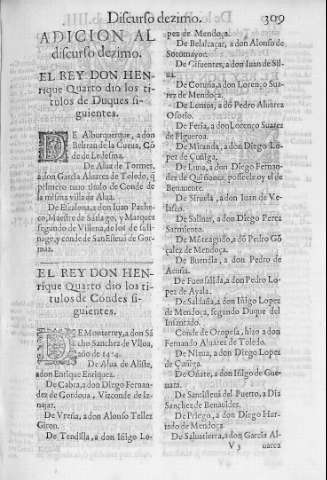 Discurso dezimo. 309
ADICION AL
discurso dezimo.
EL REY DON HEN-
rique Quarto dio los ti-
tulos de Duques si-
guientes.
DE Alburquerque, a don
Beltran de la Cueua, Cõ
de de Ledesma.
De Alua de Tormes,
a don Garcia Aluarez de Toledo, q̃
primero tuuo titulo de Conde de
la misma villa de Alua.
De Escalona, a don Iuan Pache-
co, Maestre de Sãtiago, y Marques
segundo de Villena, de los de Santi-
ago, y conde de San Esteuã de Gor-
maz.
EL REY DON HEN-
rique Quarto dio los ti-
tulos de Condes si-
guientes.
DE Monterrey, a don Sã
cho Sanchez de Vlloa,
año de 1474.
De Alua de Aliste,
a don Enrique Enriquez.
De Cabra, a don Diego Fernan-
dez de Cordoua, Vizconde de Iz-
najar.
De Vreña, a don Alonso Tellez
Giron.
De Tendilla, a don Iñigo Lo-
pez de Mendoça.
De Belalcaçar, a don Alonso de
Sotomayor.
De Cifuentes, a don Iuan de Sil-
ua.
De Coruña, a don Lorenço Sua-
rez de Mendoça.
De Lemos, a dõ Pedro Aluarez
Osorio.
De Feria, a dõ Lorenço Suarez
de Figueroa.
De Miranda, a don Diego Lo-
pez de Çuñiga.
De Luna, a don Diego Fernan-
dez de Quiñones, posseelo oy el de
Benauente.
De Siruela, a don Iuan de Ve-
lasco.
De Salinas, a don Diego Perez
Sarmiento.
De Mõteagudo, a dõ Pedro Gõ
çalez de Mendoça.
De Buendia, a don Pedro de
Acuña.
De Fuensalida, a don Pedro Lo-
pez de Ayala.
De Saldaña, a don Iñigo Lopez
de Mendoça, segundo Duque del
Infantado.
Conde de Oropesa, hizo a don
Fernando Aluarez de Toledo.
De Nieua, a don Diego Lopez
de Çuñiga.
De Oñate, a don Iñigo de Gue-
uara.
De Santisteuã del Puerto, a Dia
Sanchez de Benauides.
De Priego, a don Diego Hur-
tado de Mendoça.
De Saluatierra, a don Garcia Al-
V 3 uarez